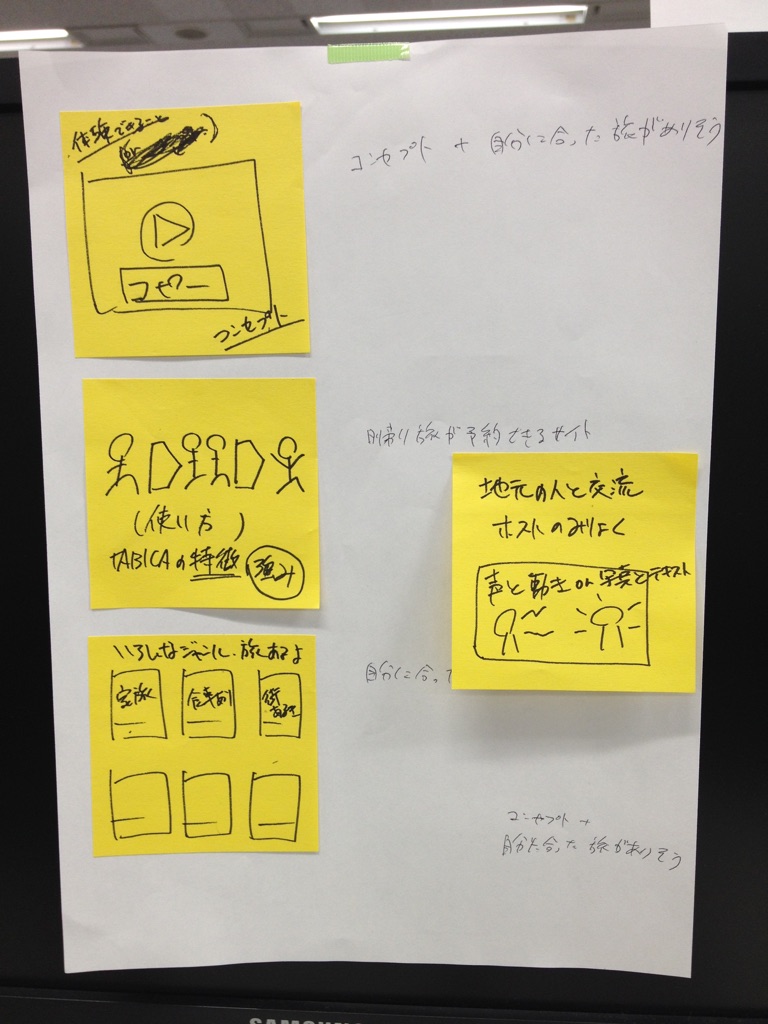 体験できること
(or )
コピー
コンセプト
コンセプト + 自分に合った旅がありそう
(使い方)
TABICAの特徴
強み
日帰り旅が予約できるサイト
地元の人と交流
ホストのみりょく
声と動き or 写真とテキスト
いろんなジャンル、旅あるよ
家族
街歩き
自分に合って
コンセプト +
自分に合った旅がありそう
SAMSUNG